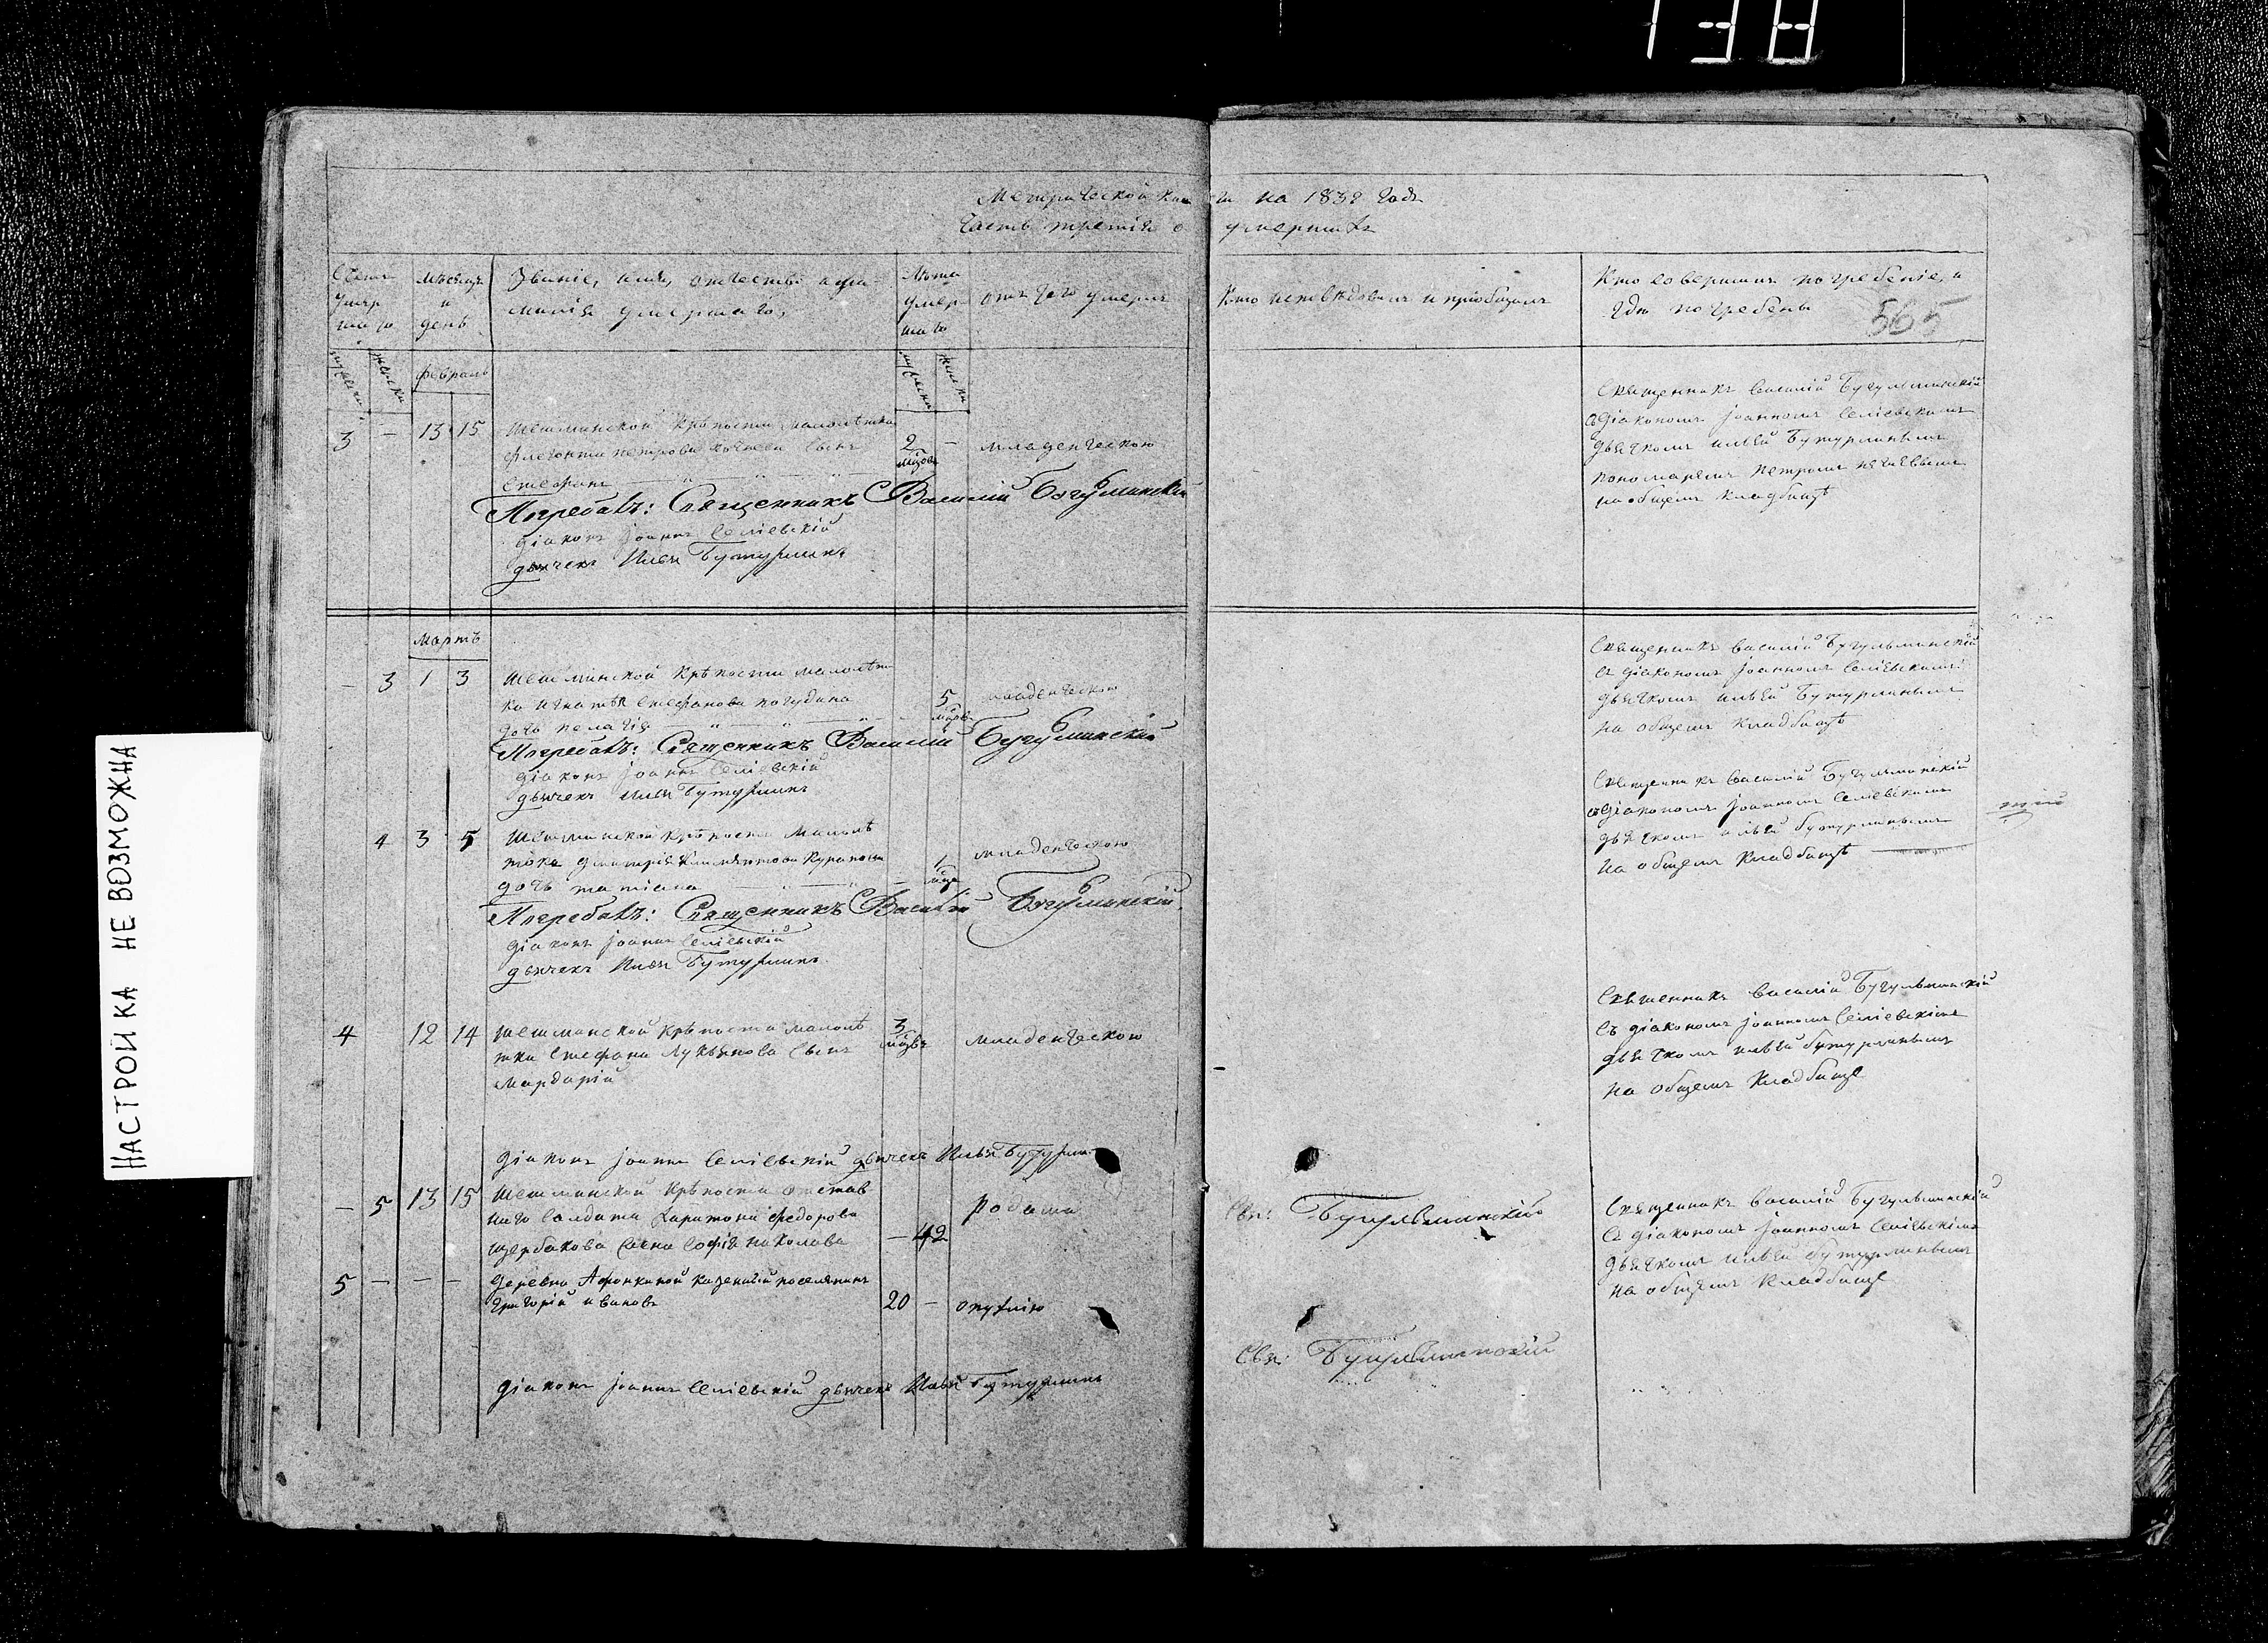 138
Метрической книги на 1838 годъ
Часть третія о умершихъ
Счетъ умершаго
Мѣсяцъ и день
Званіе, имя, отчество и фамилія умершаго,
Лѣта умершаго
отъ чего умеръ
Кто исповѣдовалъ и пріобщалъ
Кто совершилъ погребеніе, и
гдѣ погребены
565
мужеска
женска
февраль
мужеска
женска
3 — 13 15 Шешминской крѣпости малолѣтка
сынъ
Стефанъ
2 мѣсяцовъ — младенческою
Погребалъ: Священникъ Василий Бугульминский
діаконъ Іоаннъ Селіевскій
дьячекъ Илья Бутурлинъ
Священникъ Василій Бугульминскій
съ діакономъ Іоанномъ Селіевскимъ
дьячкомъ Ильей Бутурлинымъ
пономаремъ Петромъ
на общемъ кладбищѣ
мартъ
— 3 1 3 Шешминской крѣпости малолѣт
ка Игнатія Стефанова Погудина
дочь Пелагія
5 мѣсяцовъ младенческою
Погребалъ: Священникъ Василий Бугульминский
діаконъ Іоаннъ Селіевскій
дьячекъ Илья Бутурлинъ
Священникъ Василій Бугульминскій
съ діакономъ Іоанномъ Селіевскимъ
дьячкомъ Ильей Бутурлинымъ
на общемъ кладбищѣ
4 3 5 Шешминской крѣпости малолѣ
тка Дмитрія
дочь татіана
1 мѣсяца младенческою
Погребалъ: Священникъ Василий Бугульминский
діаконъ Іоаннъ Селіевскій
дьячекъ Илья Бутурлинъ
Священникъ Василій Бугульминскій
съ діакономъ Іоанномъ Селіевскимъ
дьячкомъ Ильей Бутурлинымъ
на общемъ кладбищѣ
4 12 14 Шешминской крѣпости малолѣ
тки Стефана Лукьянова сынъ
Мардарій
3 мѣсяцовъ младенческою
Священникъ Василій Бугульминскій
съ діакономъ Іоанномъ Селіевскимъ
дьячкомъ Ильей Бутурлинымъ
на общемъ кладбище
діаконъ Іоаннъ Селіевскій дьячекъ Илья Бутурлинъ
— 5 13 15 Шешминской крѣпости отстав
наго солдата Харитона Федорова
Щербакова жена Софія Николаева
— 42 родами
Свя: Бугульминскій
Священникъ Василій Бугульминскій
съ діакономъ Іоанномъ Селіевскимъ
дьячкомъ Ильей Бутурлинымъ
на общемъ кладбище
5 — — — деревни Афонкиной казенный поселянинъ
Григорій Ивановъ
20 — опухлію
Свя: Бугульминскій
діаконъ Іоаннъ Селіевскій дьячекъ Илья Бутурлинъ
НАСТРОЙКА НЕ ВОЗМОЖНА